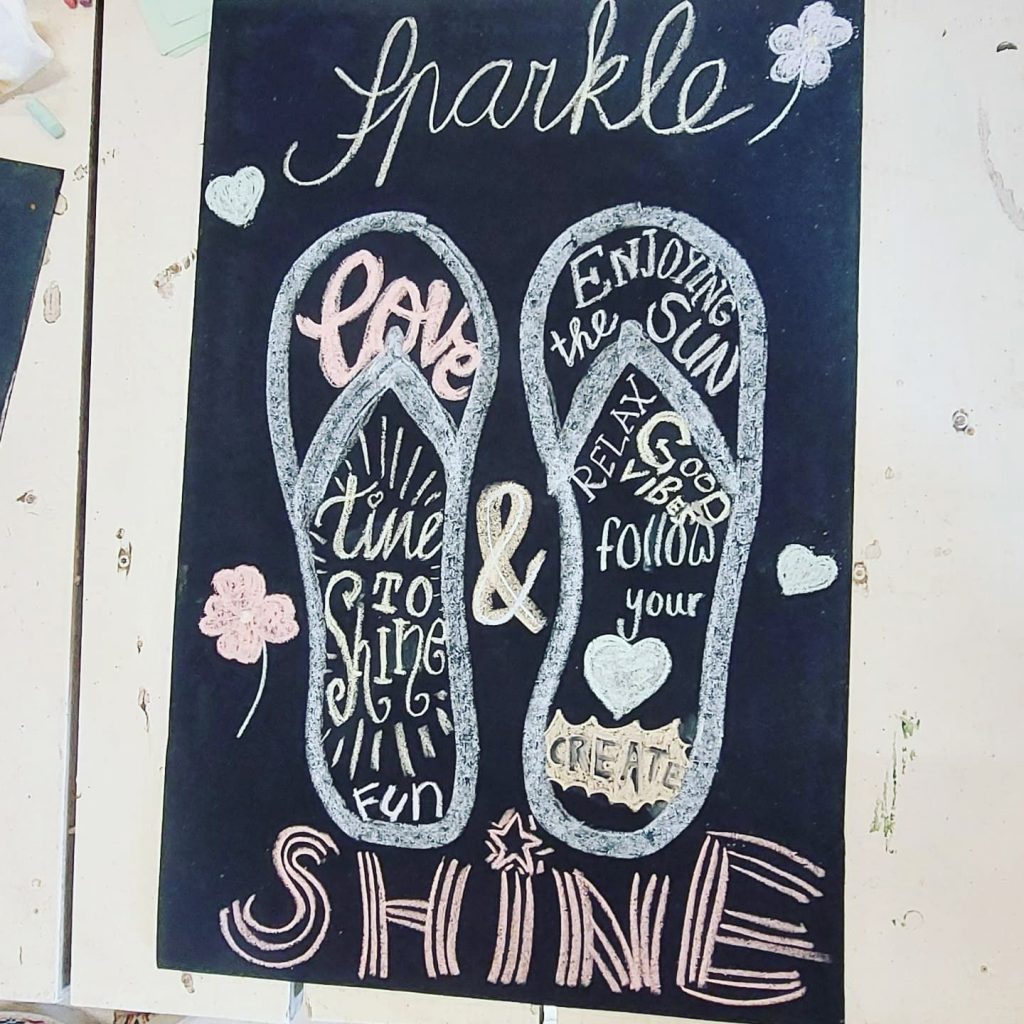 Sparkle
love
time
TO
Shine
FUN
&
ENJOYING
the SUN
RELAX
GOOD
VIBES
follow
your
CREATE
SHiNE